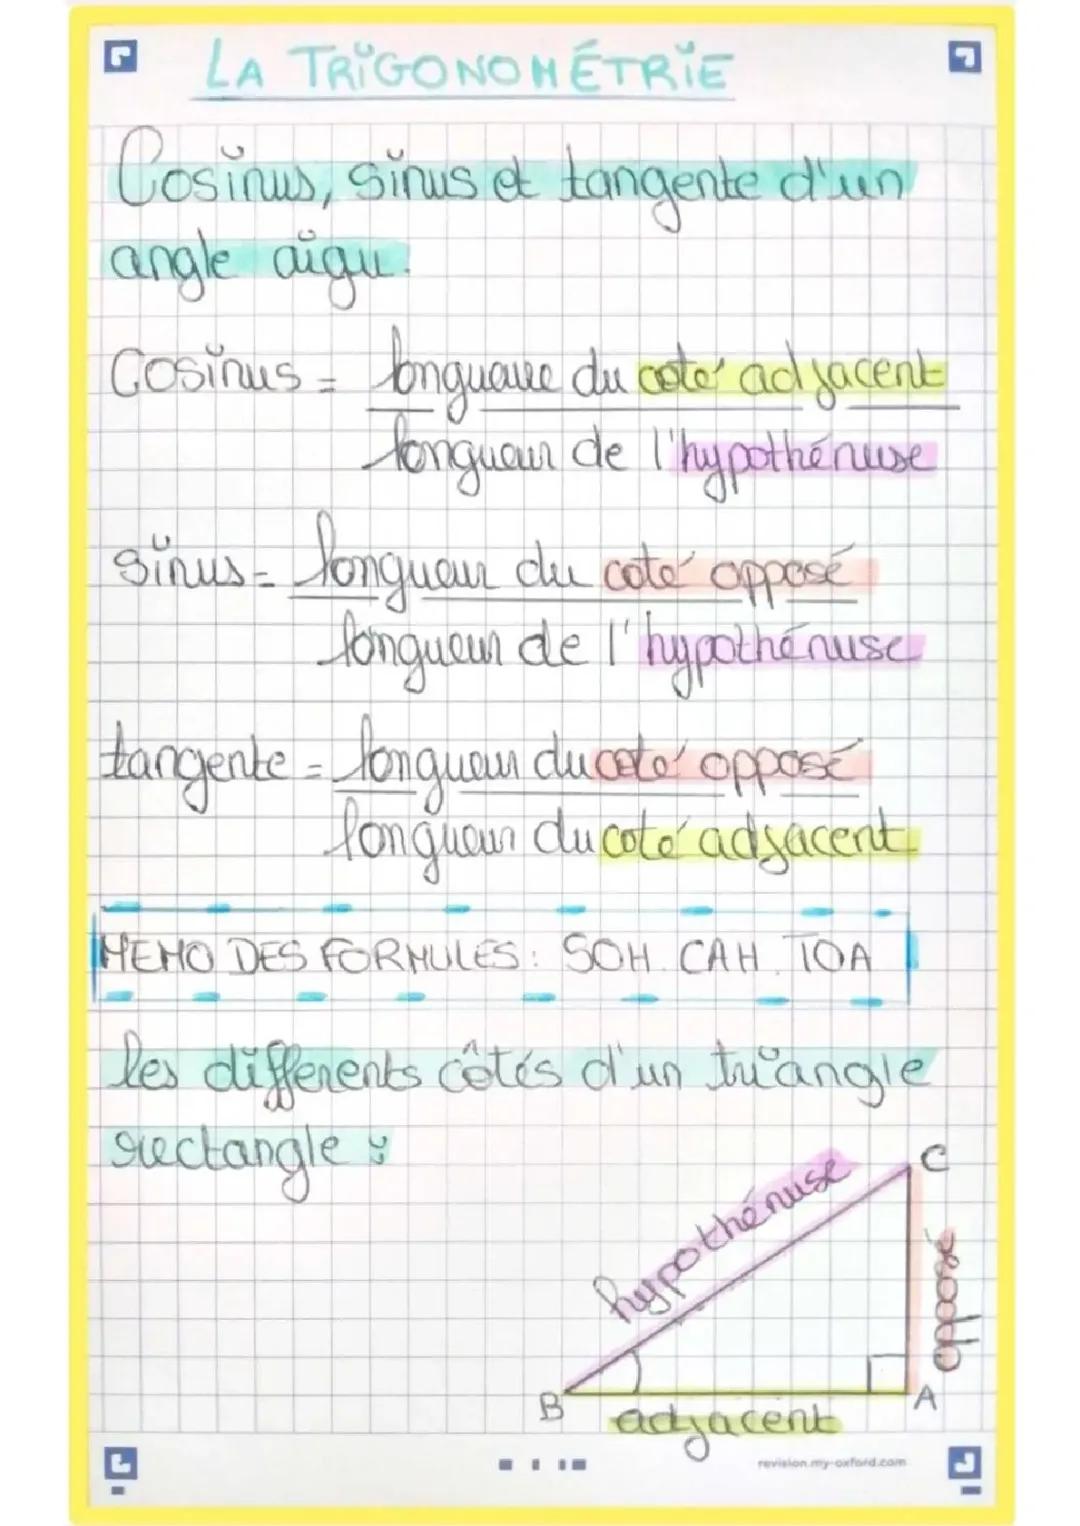 LA TRIGONOMÉTRIE
Cosinus, sinus et tangente d'un
angle aigu.
Cosinus = longueur du coté adjacent
longueur de l'hypothénuse
sinus = longueur du coté opposé
longueur de l'hypothénuse
tangente = longueur du coté opposé
longueur du coté adjacent
MEMO DES FORMULES : SOH. CAH. TOA
les différents côtés d'un triangle
rectangle :
C
hypothénuse
opposé
B
A
adjacent
revision.my-oxford.com